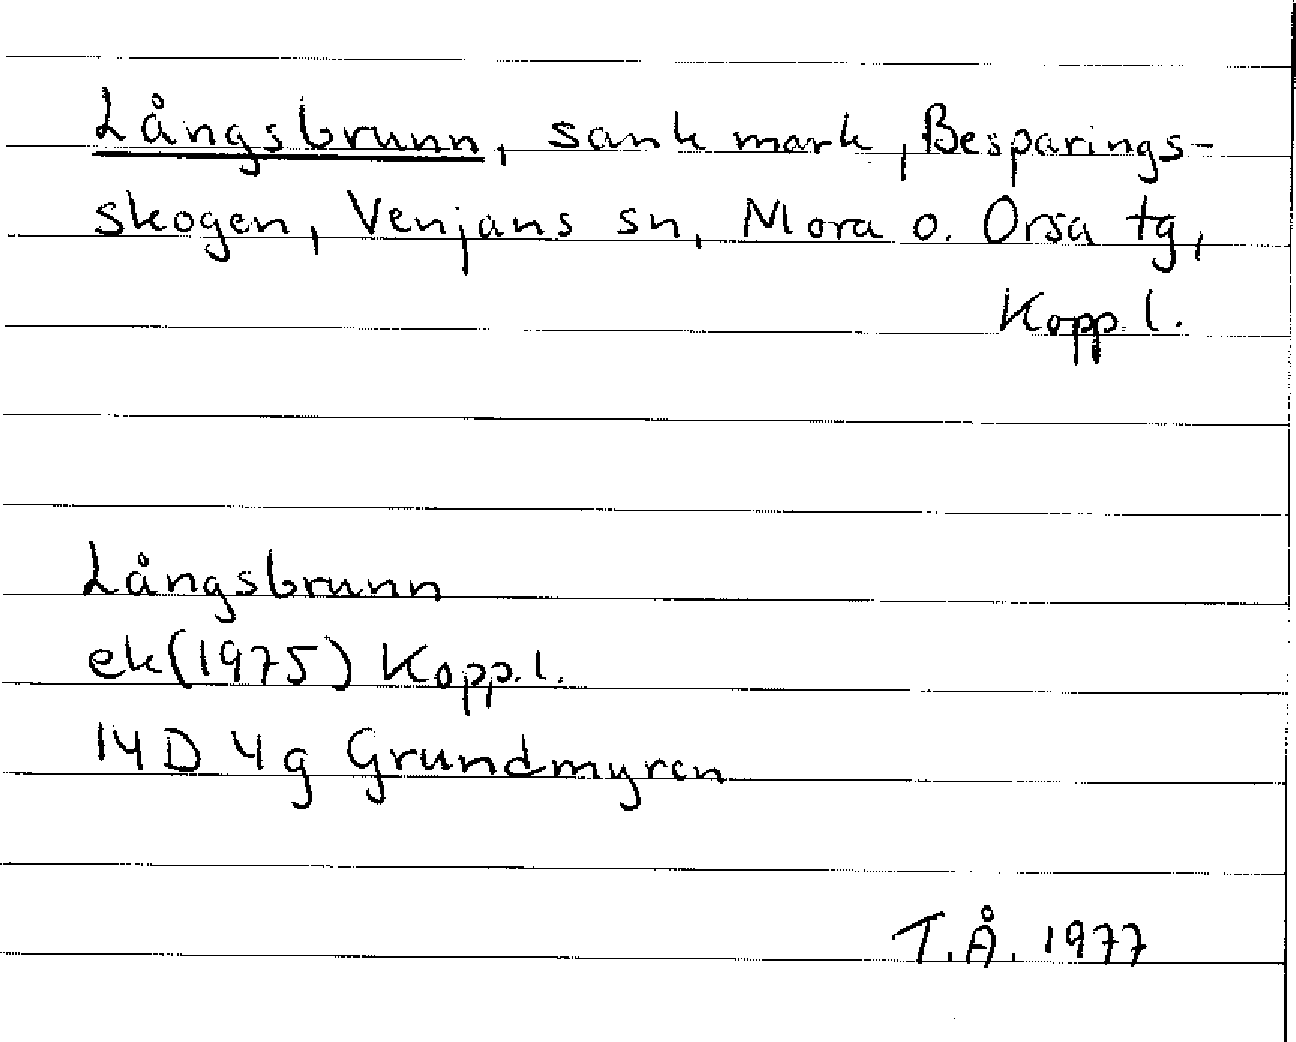 Långsbrunn, sank mark, Besparings-
skogen, Venjans sn, Mora o. Orsa tg,
Kopp. l.
Långsbrunn
ek (1975) Kopp. l.
14 D 4g Grundmyren
T.Å. 1977